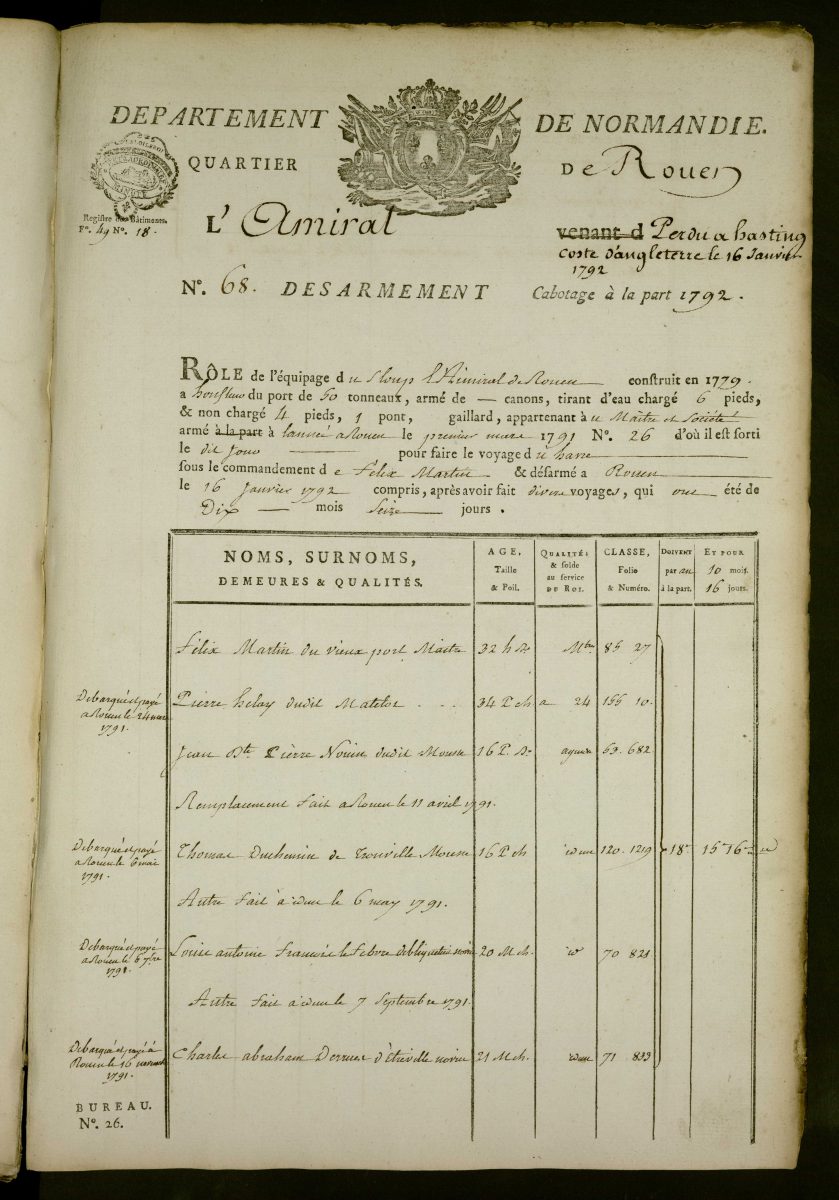 DEPARTEMENT DE NORMANDIE.
QUARTIER DE Rouen
Registre des Bâtimens.
F°. 49 N°. 18.
L' Amiral
venant d Perdu a hasting
coste d'angleterre le 16 Janvier
1792
N°. 68. DESARMEMENT Cabotage à la part 1792.
RÔLE de l'équipage du Sloup l'Amiral de Rouen construit en 1779.
a honfleur du port de 50 tonneaux, armé de — canons, tirant d'eau chargé 6 pieds,
& non chargé 4 pieds, 1 pont, gaillard, appartenant au Maitre et Société
armé à la part à l'année a Rouen le premier mars 1791 N°. 26 d'où il est sorti
le dit Jour pour faire le voyage du havre
sous le commandement de Felix Martin & désarmé a Rouen
le 16 Janvier 1792 compris, après avoir fait divers voyages, qui ont été de
Dix mois Seize jours.
NOMS, SURNOMS,
DEMEURES & QUALITÉS.
AGE,
Taille
& Poil.
QUALITÉS
& solde
au service
DU ROI.
CLASSE,
Folio
& Numéro.
DOIVENT
par an
à la part.
ET POUR
10 mois.
16 jours.
Félix Martin du vieux port Maitre 32 85 27
Debarqué et payé
a Rouen le 24 mars
1791.
Pierre helay dudit Matelot 34 P ch a 24 155 10.
Jean Bte Pierre dudit Mousse 16 P. 63. 682
Remplacement Fait a Rouen le 11 avril 1791.
Debarqué et payé
a Rouen le 6 mai
1791.
Thomas Duchemin de Trouville Mousse 16 P ch idem 120. 1219 18 15 16
Autre Fait à idem le 6 may 1791.
Debarqué et payé
a Rouen le 6 7bre
1791.
Louis antoine François le Febvre 20 M ch. id 70 821
Autre Fait à idem le 7 Septembre 1791.
Debarqué et payé à
Rouen le 16
1791.
Charles abraham d'étréville novice 21 M ch. idem 71 833
BUREAU.
N°. 26.